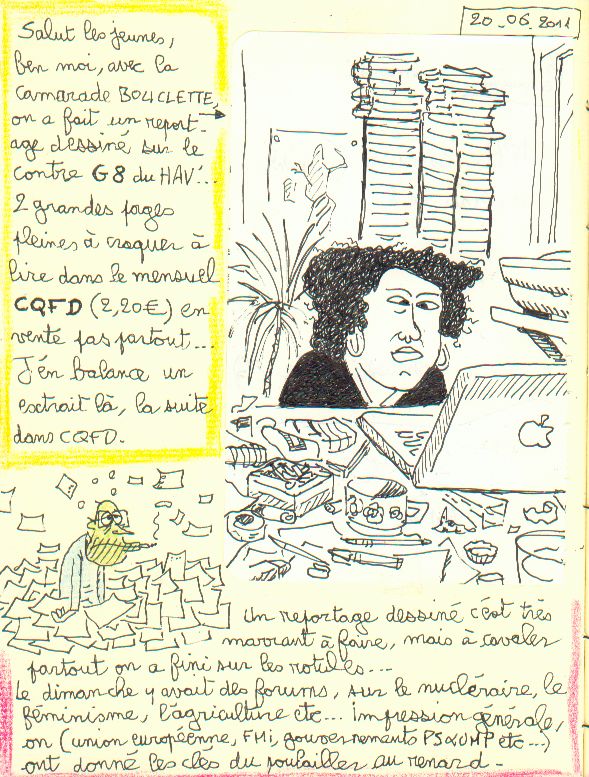 20_06_2011
Salut les jeunes,
ben moi, avec la
camarade BOUCLETTE,
on a fait un report-
age dessiné sur le
contre G8 du HAV'...
2 grandes pages
pleines à craquer à
lire dans le mensuel
CQFD (2,20€) en
vente pas partout...
J'en balance un
extrait là, la suite
dans CQFD.
Un reportage dessiné c'est très
marrant à faire, mais à cavaler
partout on a fini sur les rotules...
Le dimanche y avait des forums, sur le nucléraire, le
féminisme, l'agriculture etc... impression générale,
on (union européenne, FMi, gouvernements PS&UMP etc...)
ont donné les clés du poulailler au renard.